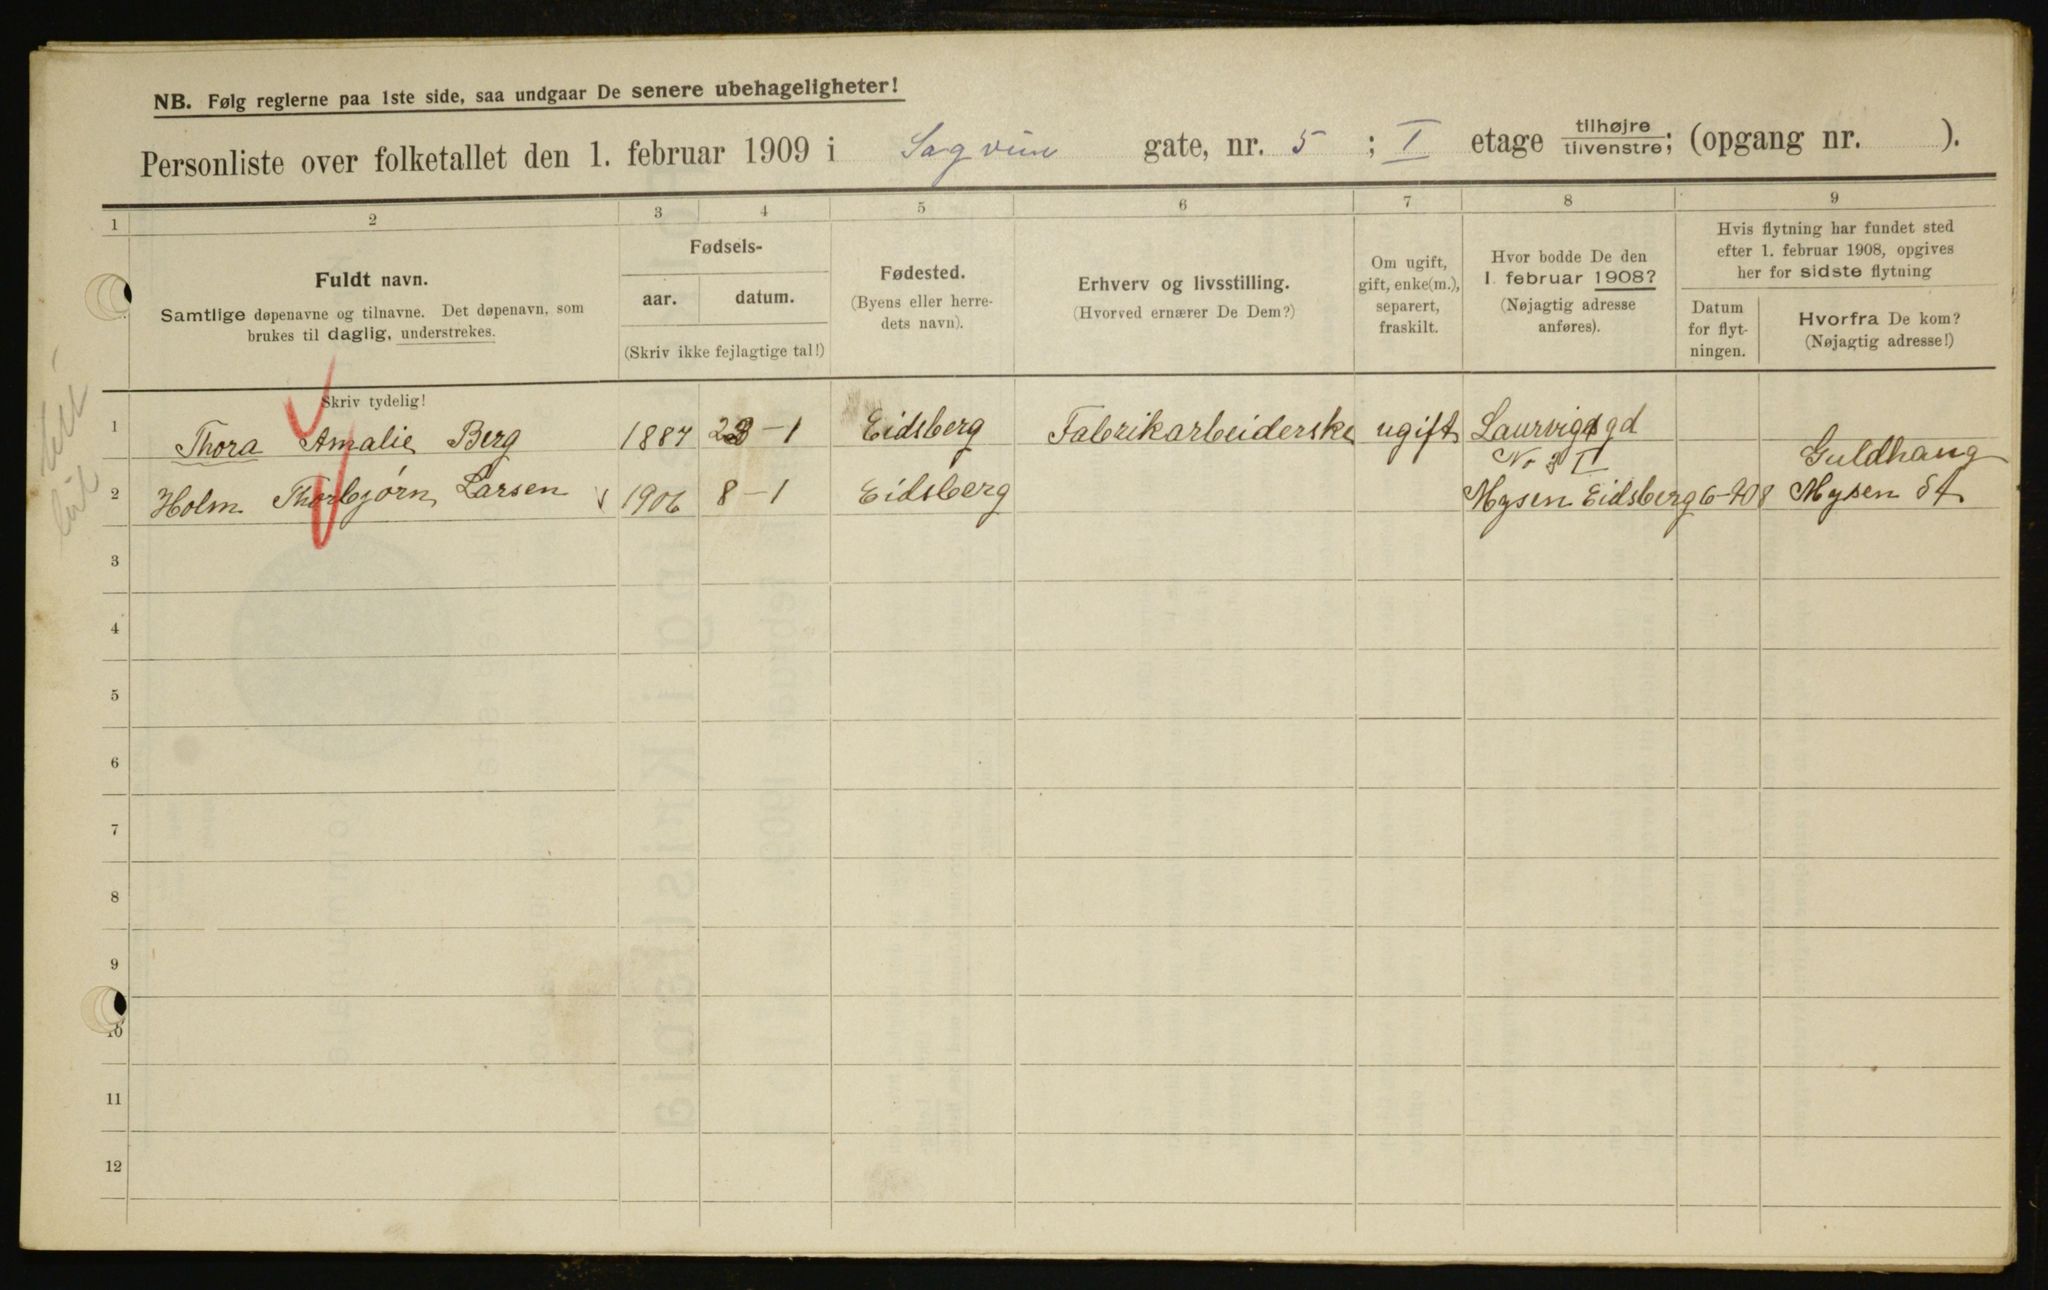 NB. Følg reglerne paa 1ste side, saa undgaar De senere ubehageligheter!
Personliste over folketallet den 1. februar 1909 i Sagvein gate, nr. 5 ; I etage tilhøjre tilvenstre; (opgang nr. ).
1 2 3 4 5 6 7 8 9
Fuldt navn.
Samtlige døpenavne og tilnavne. Det døpenavn, som
brukes til daglig, understrekes.
Fødsels-
aar. datum.
(Skriv ikke fejlagtige tal!)
Fødested.
(Byens eller herre-
dets navn).
Erhverv og livsstilling.
(Hvorved ernærer De Dem?)
Om ugift,
gift, enke(m.),
separert,
fraskilt.
Hvor bodde De den
1. februar 1908?
(Nøjagtig adresse
anføres).
Hvis flytning har fundet sted
efter 1. februar 1908, opgives
her for sidste flytning
Datum
for flyt-
ningen.
Hvorfra De kom?
(Nøjagtig adresse!)
Skriv tydelig!
1 Thora Amalie Berg 1887 23-1 Eidsberg Fabrikarbeiderske ugift Laurvigsgd
No 3 I
Guldhaug
2 Holm Thorbjørn Larsen 1906 8-1 Eidsberg Mysen Eidsberg 6-708 Mysen St
3
4
5
6
7
8
9
10
11
12